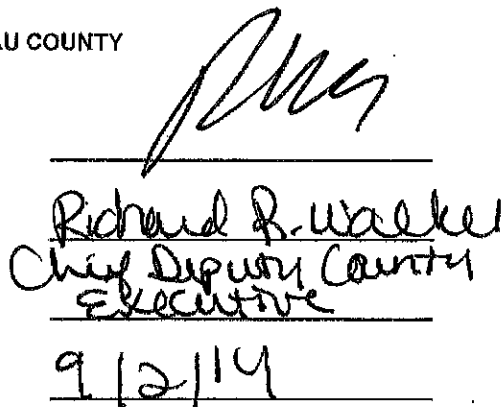 AU COUNTY
Richard R. Walker
Chief Deputy County
Executive
9/2/14